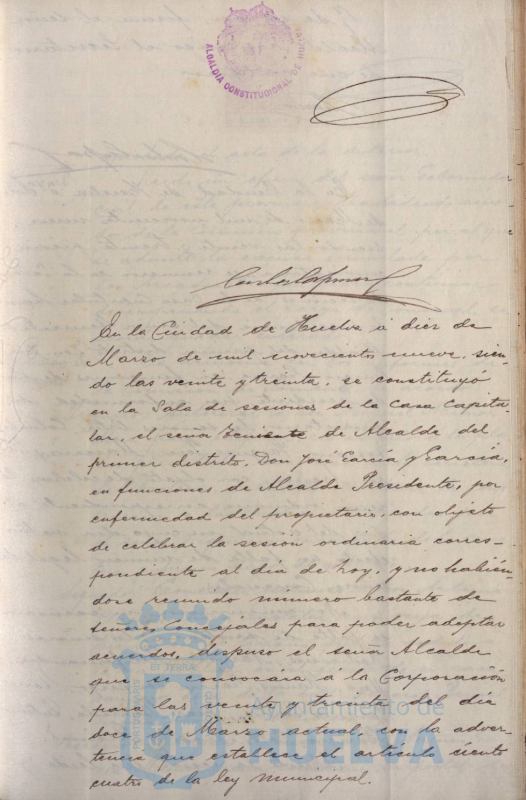 ALCALDIA CONSTITUCIONAL DE
En la Ciudad de Huelva á diez de
Marzo de mil novecientos nueve, sien-
do las veinte y treinta, se constituyó
en la Sala de sesiones de la Casa Capitu-
lar, el señor Teniente de Alcalde del
primer distrito, Don José García y García,
en funciones de Alcalde Presidente, por
enfermedad del propietario, con objeto
de celebrar la sesión ordinaria corres-
pondiente al día de hoy, y no habién-
dose reunido número bastante de
señores Concejales para poder adoptar
acuerdos, dispuso el señor Alcalde
que se convocára á la Corporación
para las veinte y treinta del día
doce de Marzo actual, con la adver-
tencia que establece el artículo ciento
cuatro de la ley municipal.
Ayuntamiento de
HUELVA